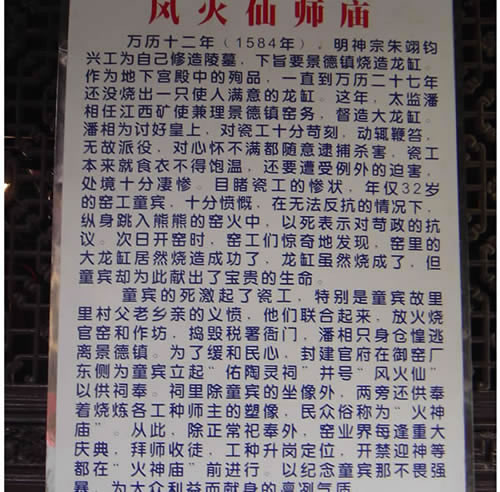 风火仙师庙
万历十二年(1584年),明神宗朱翊钧
兴工为自己修造陵墓,下旨要景德镇烧造龙缸。
作为地下宫殿中的殉品,一直到万历二十七年
还没烧出一只使人满意的龙缸。这年,太监潘
相任江西矿使兼理景德镇窑务,督造大龙缸。
潘相为讨好皇上,对瓷工十分苛刻,动辄鞭笞,
无故派役,对心怀不满都随意逮捕杀害,瓷工
本来就食衣不得饱温,还要遭受例外的迫害,
处境十分凄惨。目睹瓷工的惨状,年仅32岁
的窑工童宾,十分愤慨,在无法反抗的情况下,
纵身跳入熊熊的窑火中,以死表示对苛政的抗
议。次日开窑时,窑工们惊奇地发现,窑里的
大龙缸居然烧造成功了,龙缸虽然烧成了,但
童宾却为此献出了宝贵的生命。
童宾的死激起了瓷工,特别是童宾故里
里村父老乡亲的义愤,他们联合起来,放火烧
官窑和作坊,捣毁税署衙门,潘相只身仓惶逃
离景德镇。为了缓和民心,封建官府在御窑厂
东侧为童宾立起"佑陶灵祠"并号"风火仙"
以供祠奉。祠里除童宾的坐像外,两旁还供奉
着烧炼各工种师主的塑像,民众俗称为"火神
庙"。从此,除正常祀奉外,窑业界每逢重大
庆典,拜师收徒,工种升岗定位,开禁迎神等
都在"火神庙"前进行。以纪念童宾那不畏强
暴,为大众利益而献身的凛冽气质